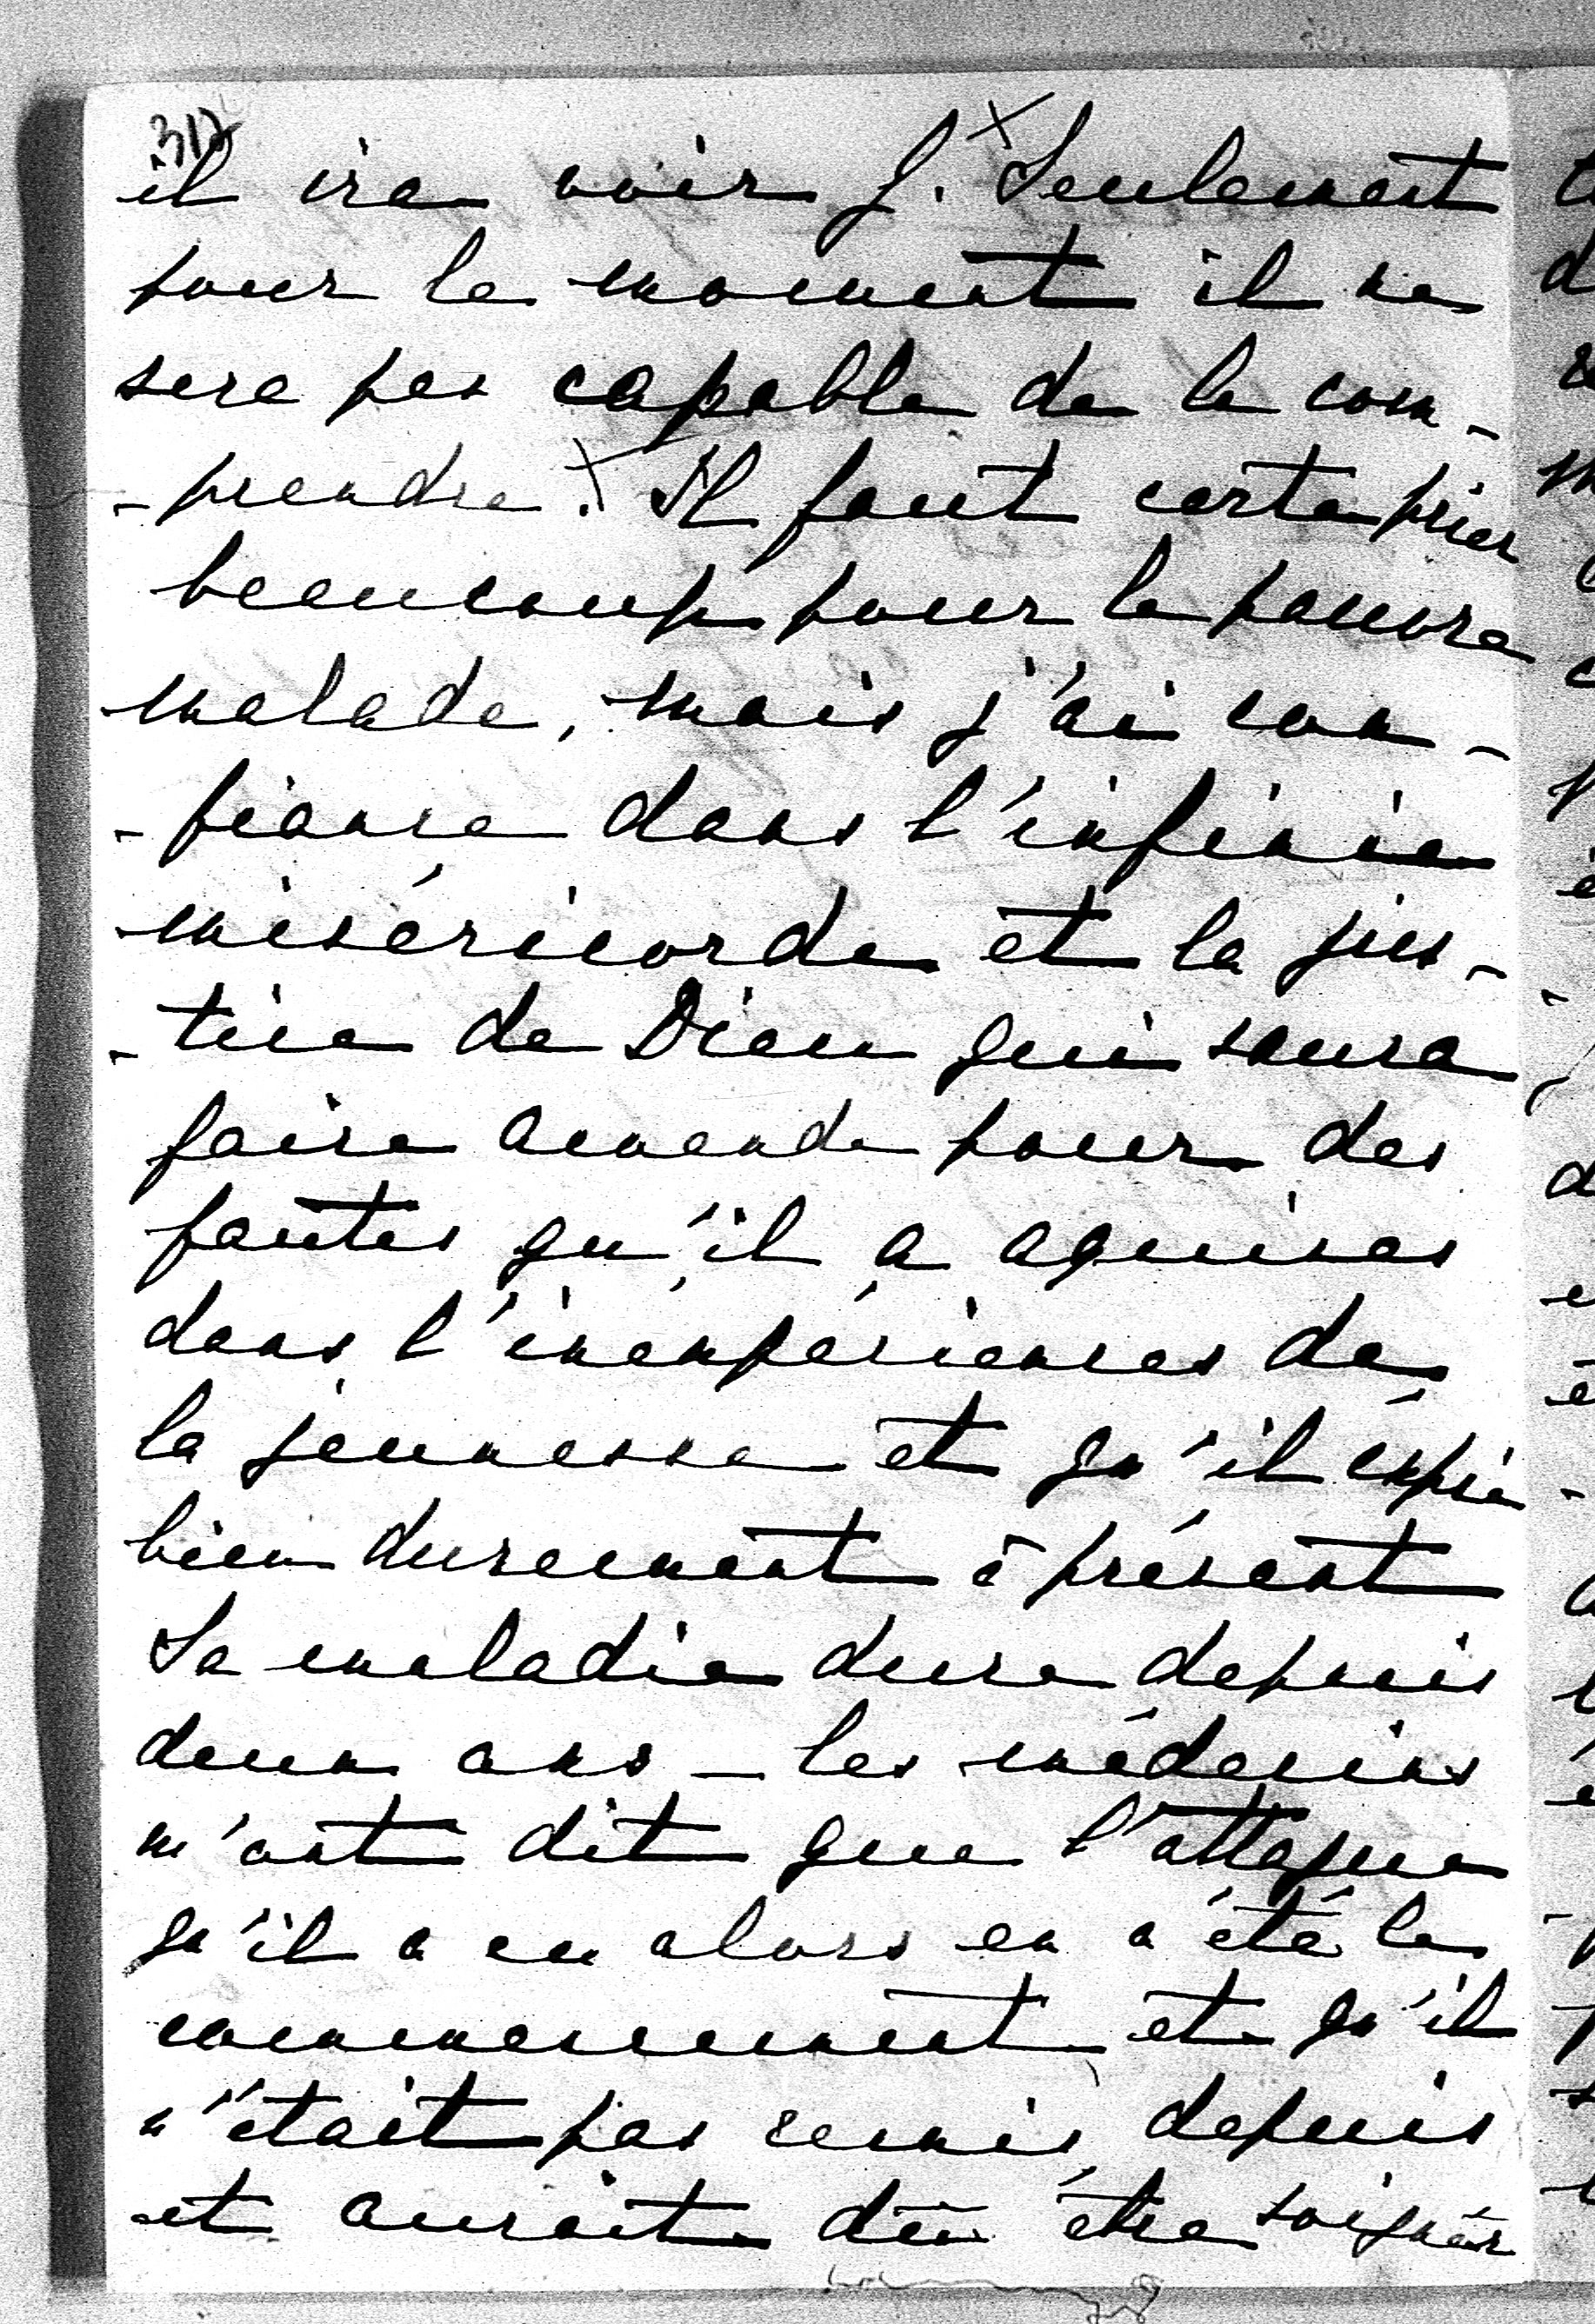 317
il ira voir J. Seulement
pour le moment il ne
sera pas capable de le com-
-prendre. Il faut certe prier
beaucoup pour le pauvre
malade, mais j'ai con-
-fiance dans l'infinie
miséricorde et la jus-
-tice de Dieu qui saura
faire amende pour des
fautes qu'il a aquises
dans l'inexpériences de
la jeunesse et qu'il expie
bien durement à présent
Sa maladie dure depuis
deux ans – les médecins
m'ont dit que l'attaque
qu'il a eu alors en a été le
commencement et qu'il
n'était pas remis depuis
et aurait dû être soigner